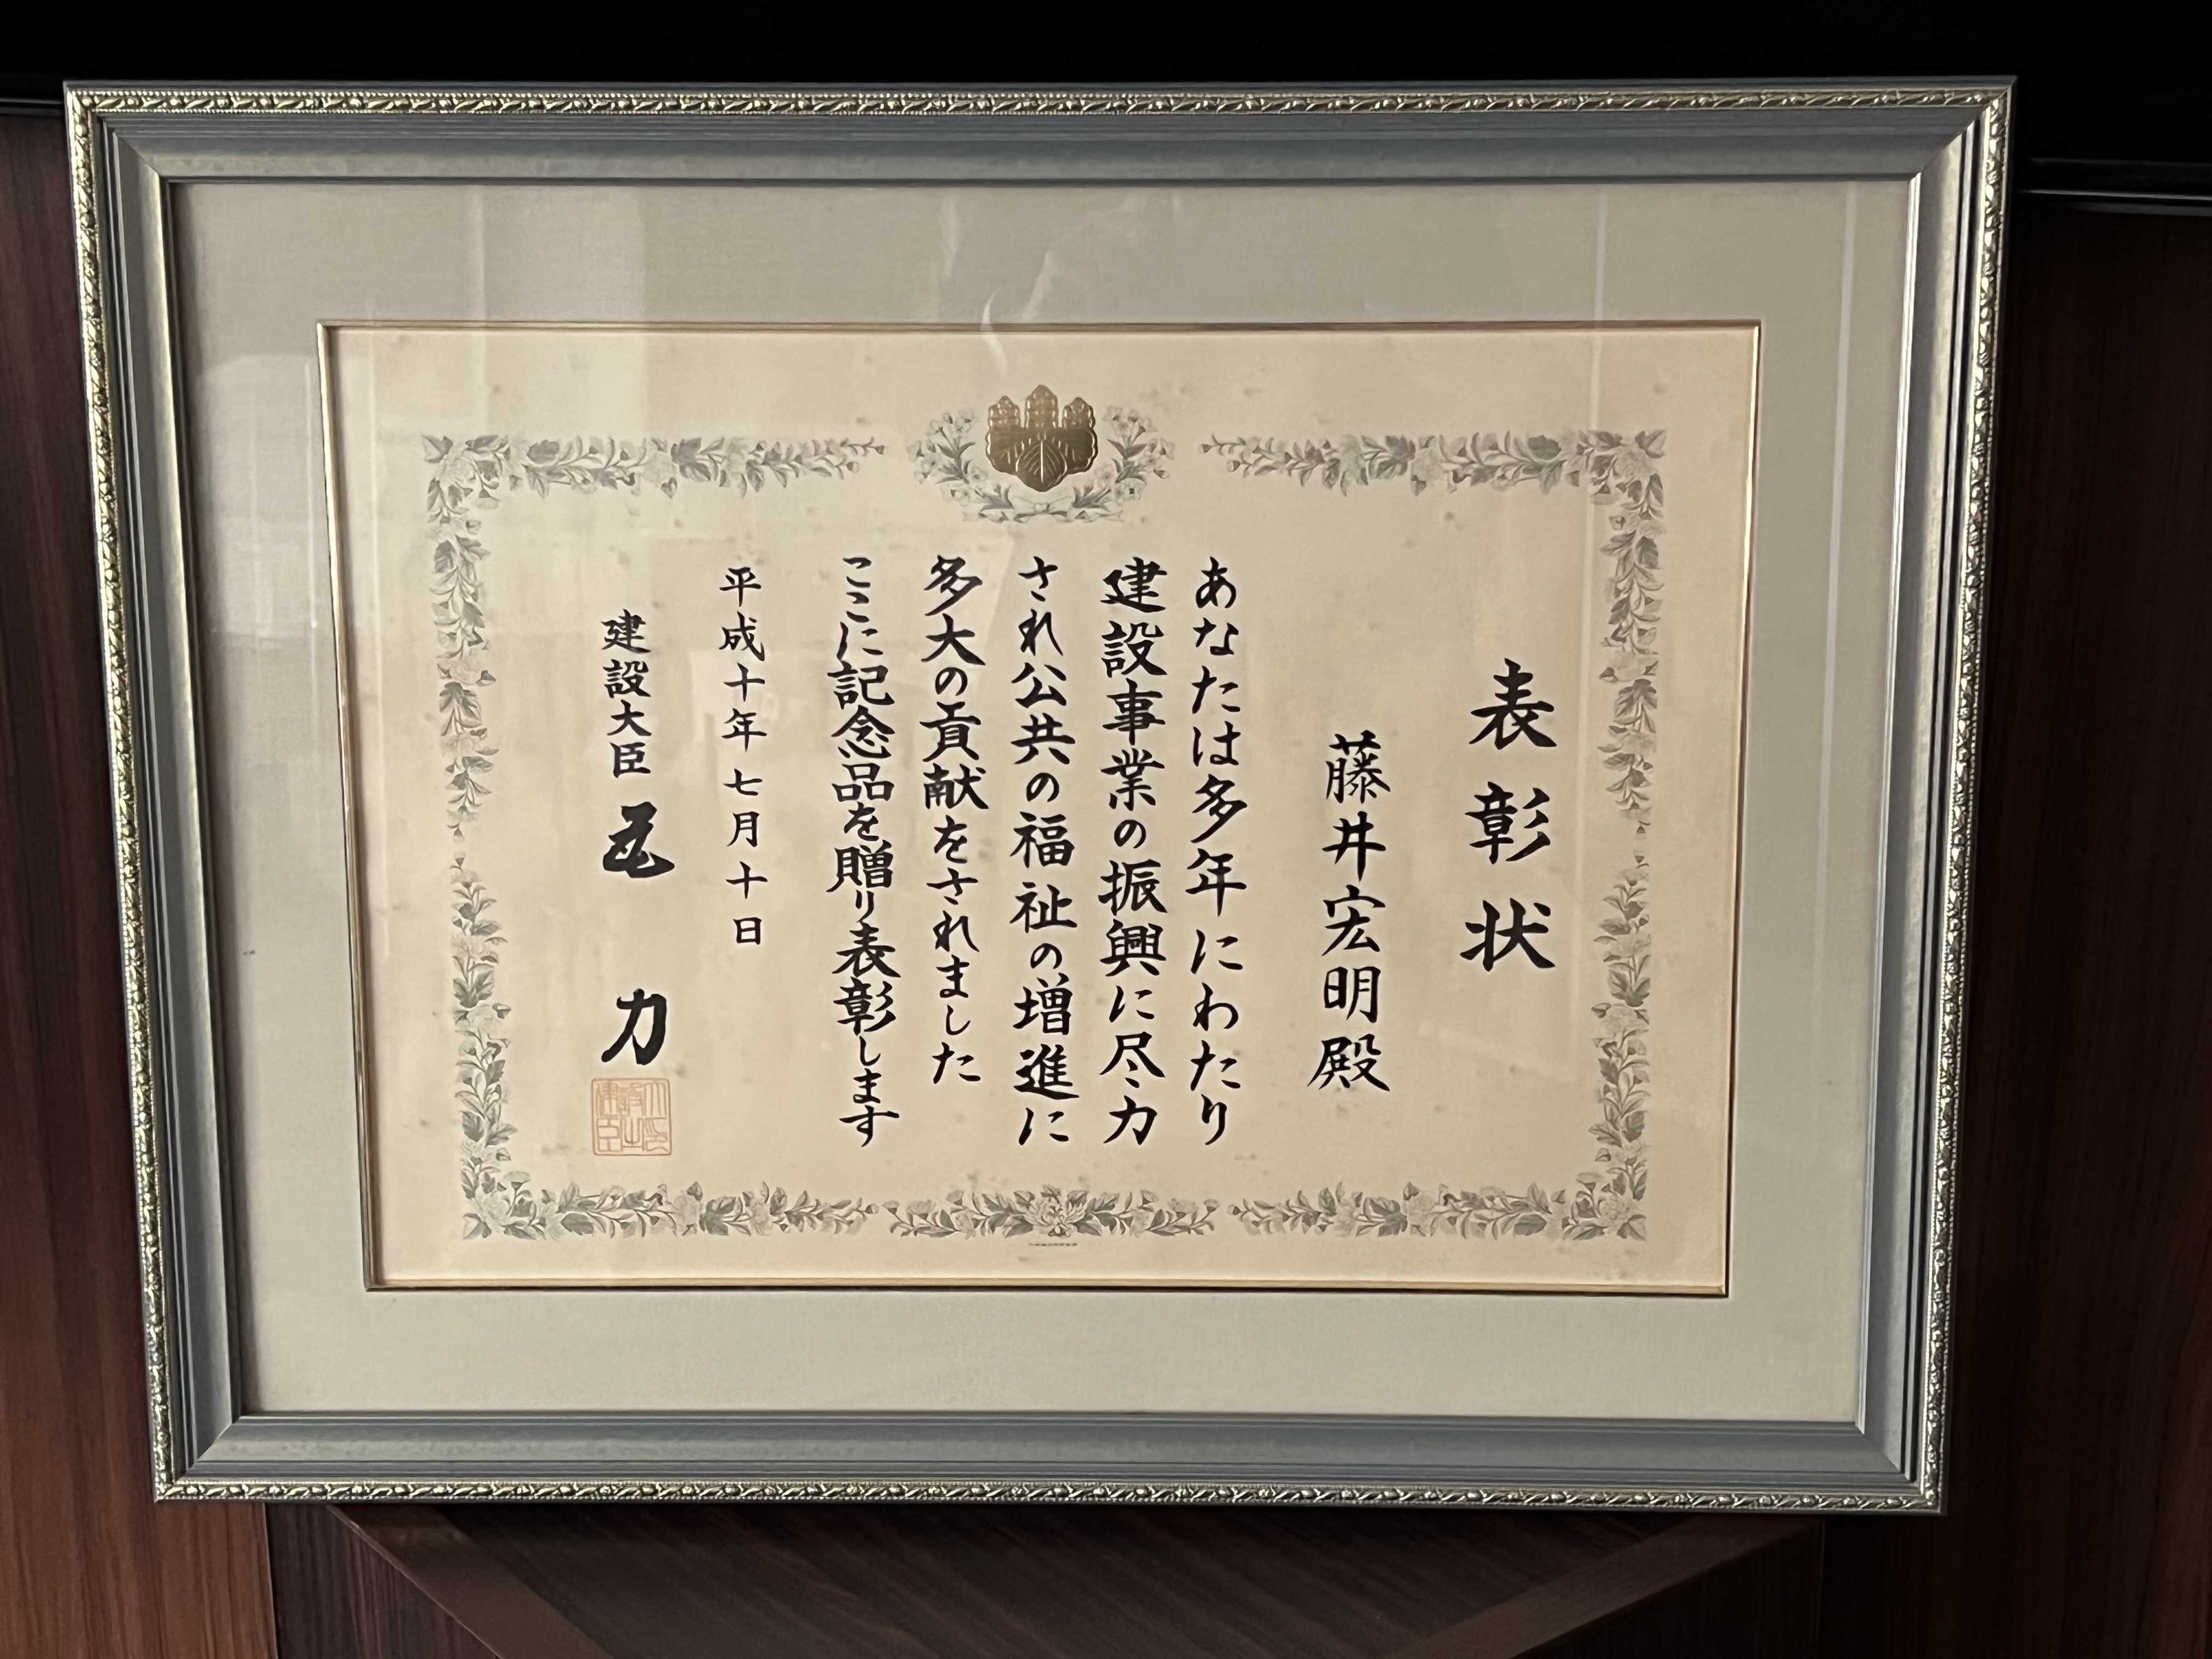 表彰状
藤井宏明殿
あなたは多年にわたり
建設事業の振興に尽力
され公共の福祉の増進に
多大の貢献をされました
ここに記念品を贈り表彰します
平成十年七月十日
建設大臣 瓦 力
建設大臣之印